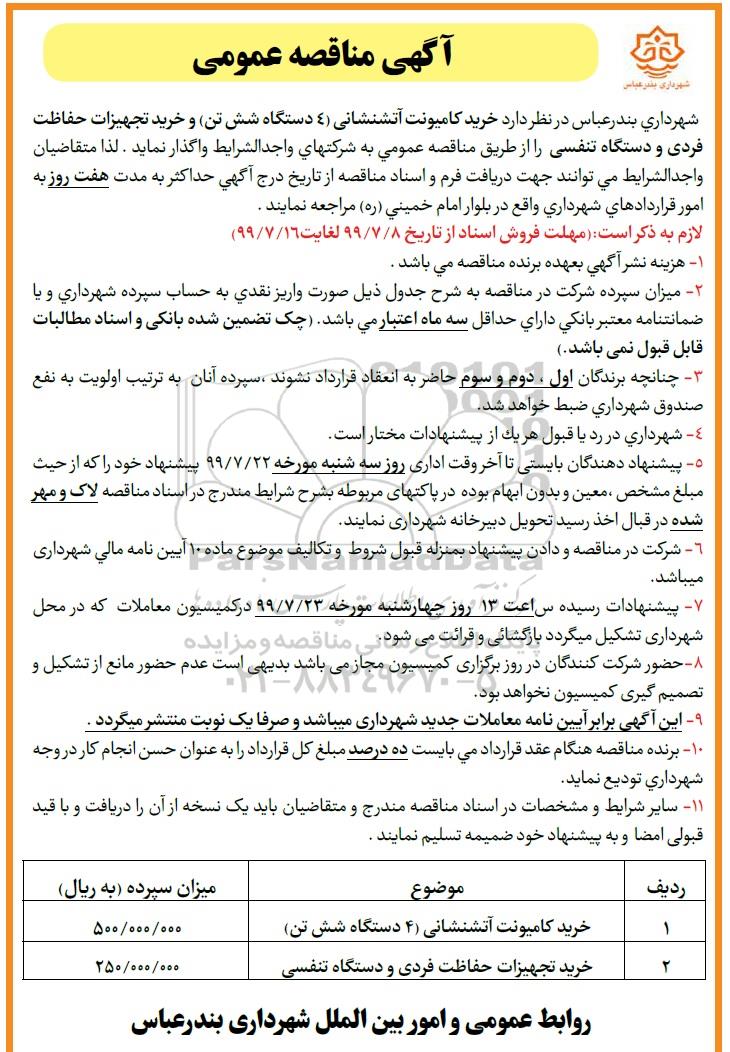 آگهی مناقصه عمومی
شهرداری بندرعباس
شهرداري بندرعباس در نظر دارد خرید کامیونت آتشنشانی (٤ دستگاه شش تن) و خرید تجهیزات حفاظت
فردی و دستگاه تنفسی را از طریق مناقصه عمومي به شرکتهاي واجدالشرایط واگذار نماید . لذا متقاضیان
واجدالشرایط مي توانند جهت دریافت فرم و اسناد مناقصه از تاریخ درج آگهي حداکثر به مدت هفت روز به
امور قراردادهاي شهرداري واقع در بلوار امام خمیني (ره) مراجعه نمایند .
لازم به ذکر است:(مهلت فروش اسناد از تاریخ ۹۹/۷/۸ لغایت۹۹/۷/۱۶)
۱- هزینه نشر آگهي بعهده برنده مناقصه مي باشد .
۲- میزان سپرده شرکت در مناقصه به شرح جدول ذیل صورت واریز نقدي به حساب سپرده شهرداري و یا
ضمانتنامه معتبر بانکي داراي حداقل سه ماه اعتبار مي باشد. (چک تضمین شده بانکی و اسناد مطالبات
قابل قبول نمی باشد.)
۳- چنانچه برندگان اول ، دوم و سوم حاضر به انعقاد قرارداد نشوند ،سپرده آنان به ترتیب اولویت به نفع
صندوق شهرداري ضبط خواهد شد.
٤- شهرداري در رد یا قبول هریك از پیشنهادات مختار است.
۵- پیشنهاد دهندگان بایستي تا آخر وقت اداری روز سه شنبه مورخه ۹۹/۷/۲۲ پیشنهاد خود را که از حیث
مبلغ مشخص ،معین و بدون ابهام بوده در پاکتهاي مربوطه بشرح شرایط مندرج در اسناد مناقصه لاک و مهر
شده در قبال اخذ رسید تحویل دبیرخانه شهرداری نمایند.
۶- شرکت در مناقصه و دادن پیشنهاد بمنزله قبول شروط و تکالیف موضوع ماده ۱۰ آیین نامه مالي شهرداری
میباشد.
۷- پیشنهادات رسیده ساعت ۱۳ روز چهارشنبه مورخه ۹۹/۷/۲۳ درکمیسیون معاملات که در محل
شهرداری تشکیل میگردد بازگشائی و قرائت می شود.
۸-حضور شرکت کنندگان در روز برگزاری کمیسیون مجاز می باشد بدیهی است عدم حضور مانع از تشکیل و
تصمیم گیری کمیسیون نخواهد بود.
۹- این آگهی برابر آیین نامه معاملات جدید شهرداری میباشد و صرفا یک نوبت منتشر میگردد .
۱۰- برنده مناقصه هنگام عقد قرارداد مي بایست ده درصد مبلغ کل قرارداد را به عنوان حسن انجام کار در وجه
شهرداري تودیع نماید.
۱۱- سایر شرایط و مشخصات در اسناد مناقصه مندرج و متقاضیان باید یک نسخه از آن را دریافت و با قید
قبولی امضا و به پیشنهاد خود ضمیمه تسلیم نمایند .
ردیف موضوع میزان سپرده (به ریال)
۱ خرید کامیونت آتشنشانی (۴ دستگاه شش تن) ۵۰۰/۰۰۰/۰۰۰
۲ خرید تجهیزات حفاظت فردی و دستگاه تنفسی ۲۵۰/۰۰۰/۰۰۰
روابط عمومی و امور بین الملل شهرداری بندرعباس
ParsNamadData
پایگاه اطلاع رسانی مناقصه و مزایده
۰۲۱-۸۸۳۴۹۶۷۰-۵